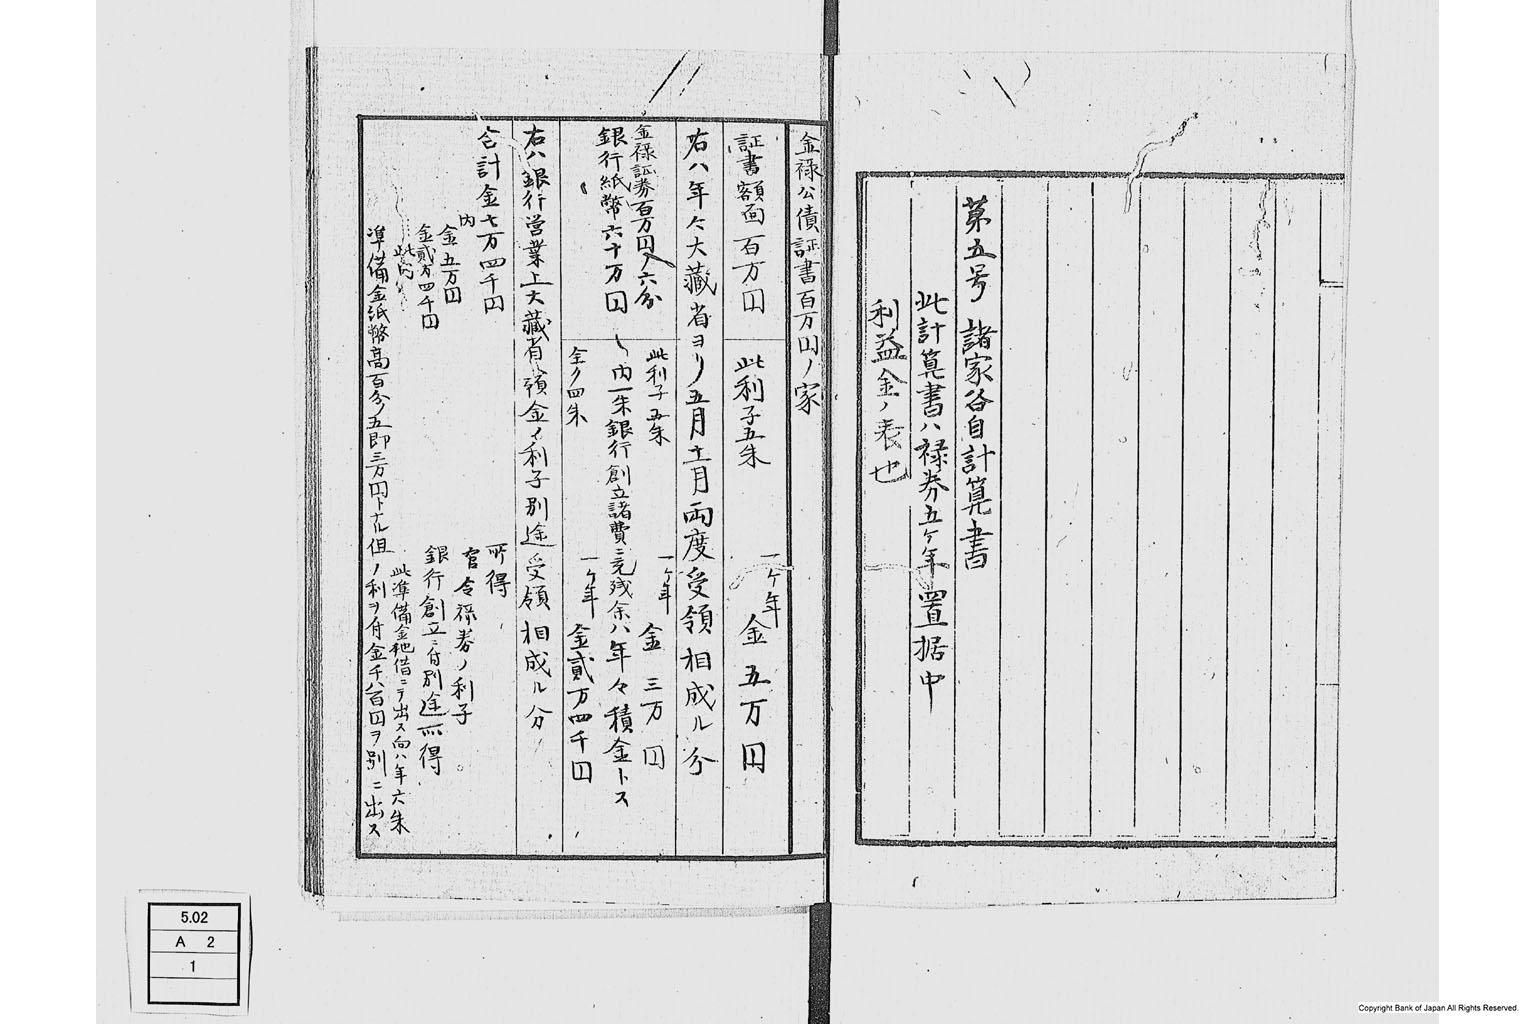 第五号 諸家各自計算書
此計算書ハ禄券五ケ年置据中
利益金ノ表也
金禄公債証書百万円ノ家
証書額面百万円 此利子五朱 一ケ年 金五万円
右ハ年々大蔵省ヨリ五月十一月両度受領相成ル分
金禄証券百万円ノ六分 此利子五朱 一ケ年 金三万円
銀行紙幣六十万円 内一朱銀行創立諸費ニ充残余ハ年々積金トス
全ク四朱 一ケ年 金貳万四千円
右ハ銀行営業上大蔵省預金ノ利子別途受領相成ル分
合計金七万四千円 所得
内
金五万円 官令禄券ノ利子
金貳万四千円 銀行創立ニ付別途所得
此内
準備金紙幣高百分ノ五即三万円トナル但
此準備金他借ニテ出ス向ハ年六朱
ノ利ヲ付金千八百円ヲ別ニ出ス
5.02
A 2
1
Copyright Bank of Japan All Rights Reserved.